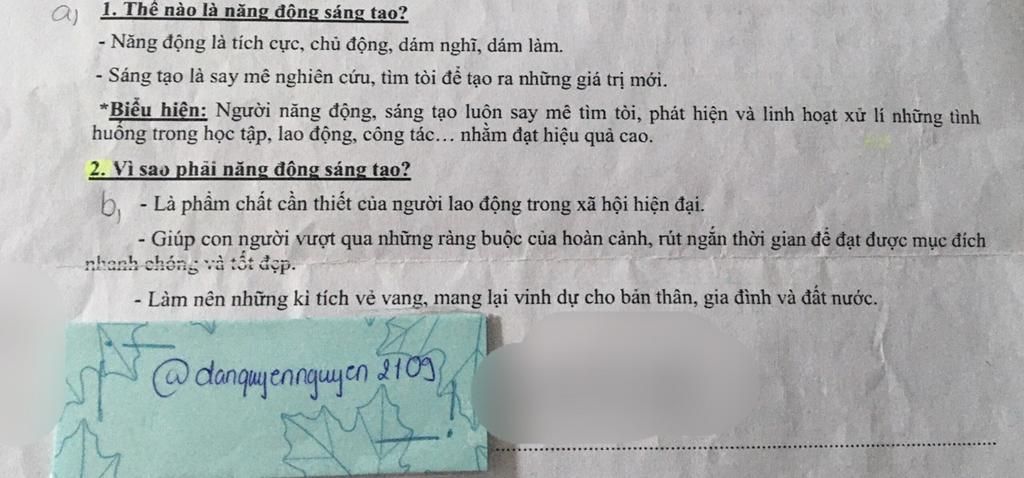 a) 1. Thế nào là năng động sáng tạo?
- Năng động là tích cực, chủ động, dám nghĩ, dám làm.
- Sáng tạo là say mê nghiên cứu, tìm tòi để tạo ra những giá trị mới.
*Biểu hiện: Người năng động, sáng tạo luôn say mê tìm tòi, phát hiện và linh hoạt xử lí những tình
huống trong học tập, lao động, công tác... nhằm đạt hiệu quả cao.
2. Vì sao phải năng động sáng tạo?
b, - Là phẩm chất cần thiết của người lao động trong xã hội hiện đại.
- Giúp con người vượt qua những ràng buộc của hoàn cảnh, rút ngắn thời gian để đạt được mục đích
nhanh chóng và tốt đẹp.
- Làm nên những kì tích vẻ vang, mang lại vinh dự cho bản thân, gia đình và đất nước.
@danquyennguyen2109